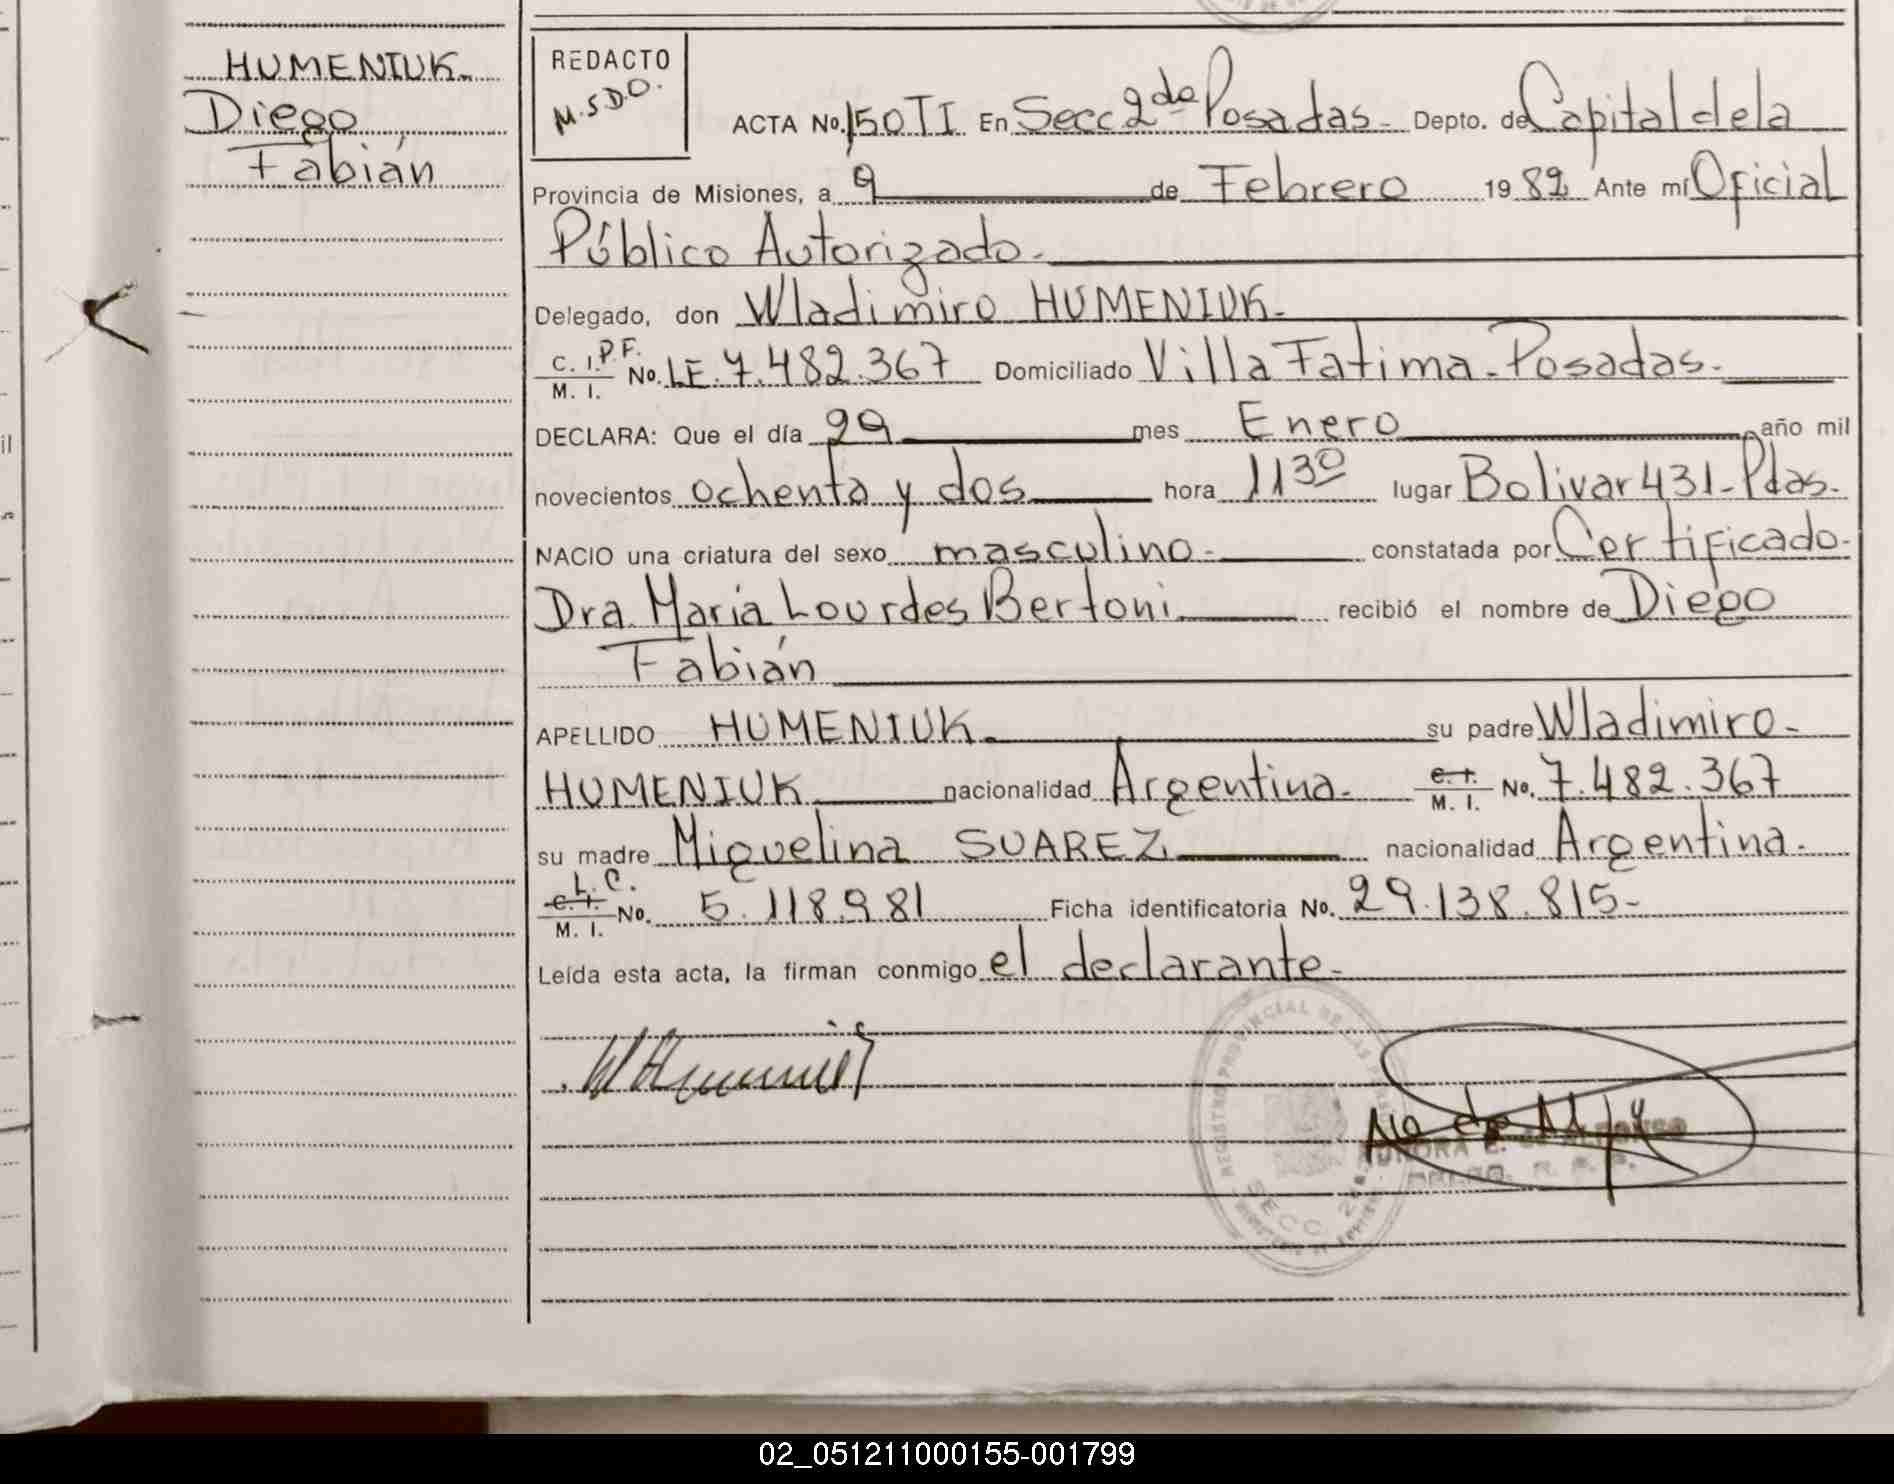 HUMENIUK
Diego
Fabián
REDACTO
M.S.D.O.
ACTA No. 150 TI En Secc 2da Posadas- Depto. de Capital de la
Provincia de Misiones, a 9 de Febrero 1982 Ante mí Oficial
Público Autorizado-
Delegado, don Wladimiro HUMENIUK-
C. I. P.F. M. I. No. LE. 7.482.367 Domiciliado Villa Fatima-Posadas-
DECLARA: Que el día 29 mes Enero año mil
novecientos ochenta y dos hora 1130 lugar Bolivar 431-Pdas-
NACIO una criatura del sexo masculino- constatada por Certificado-
Dra. María Lourdes Bertoni recibió el nombre de Diego
Fabián
APELLIDO HUMENIUK su padre Wladimiro-
HUMENIUK nacionalidad Argentina- C. I. M. I. No. 7.482.367
su madre Miguelina SUAREZ nacionalidad Argentina-
L.C. C. I. M. I. No. 5.118.981 Ficha identificatoria No. 29.138.815-
Leída esta acta, la firman conmigo el declarante-
REGISTRO PROVINCIAL DE LAS
SECC. 2da
02_051211000155-001799